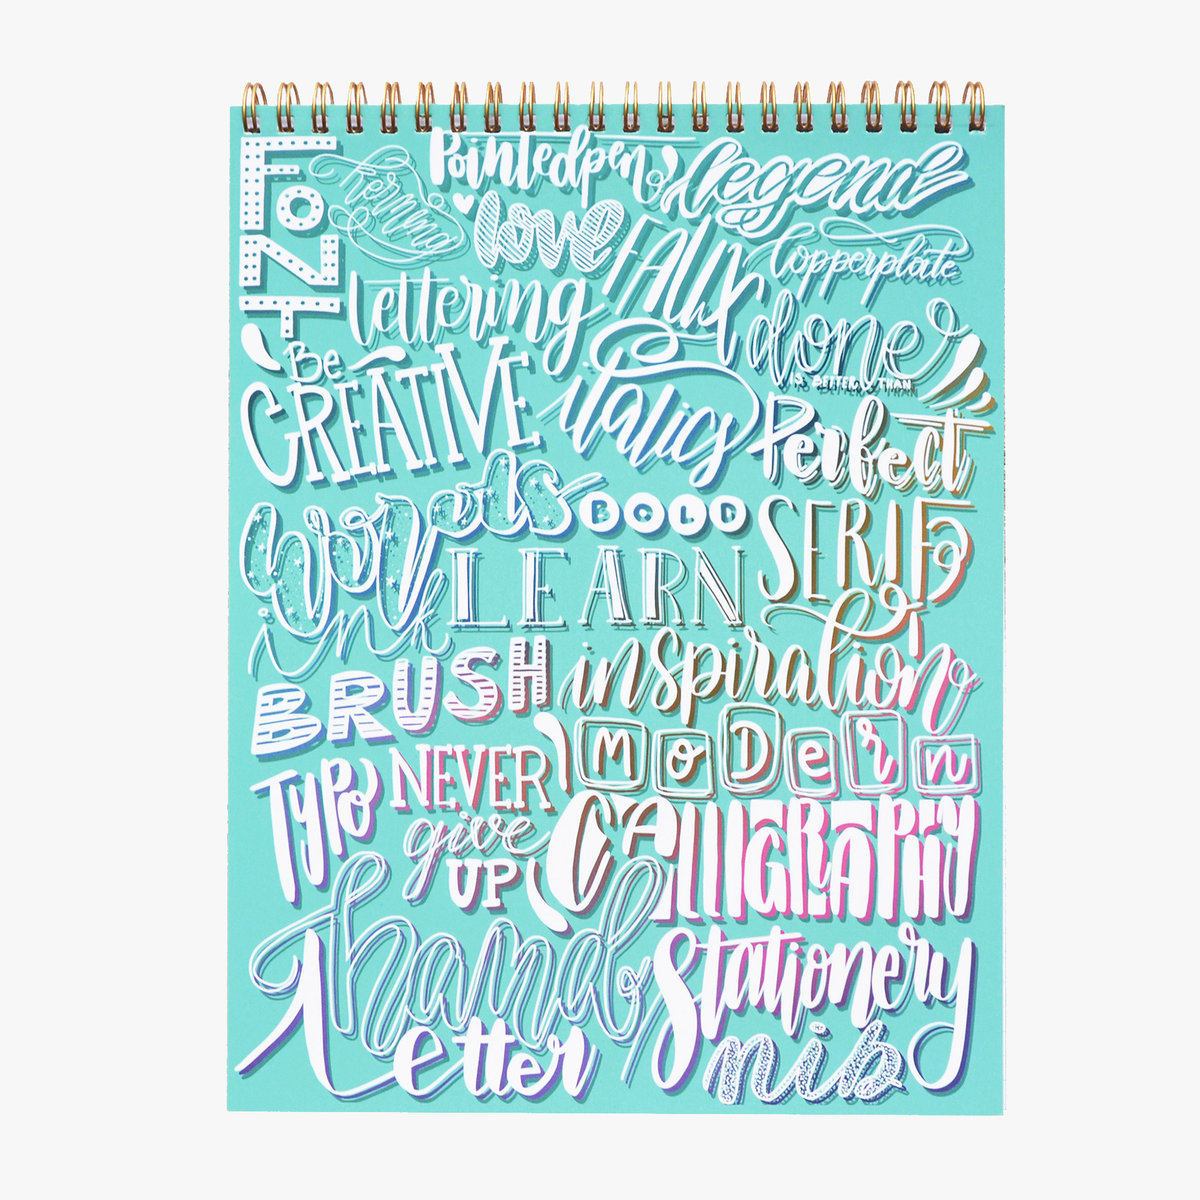 FoNT
kerning
Pointedpen
legend
love
FAUX
Copperplate
lettering
done
IS BETTER THAN
Perfect
Be
CREATIVE
italics
words
BOLD
SERIF
LEARN
ink
BRUSH
inspiration
MoDern
TYPO
NEVER
give
UP
CALLIGRAPHY
hand
letter
Stationery
nib